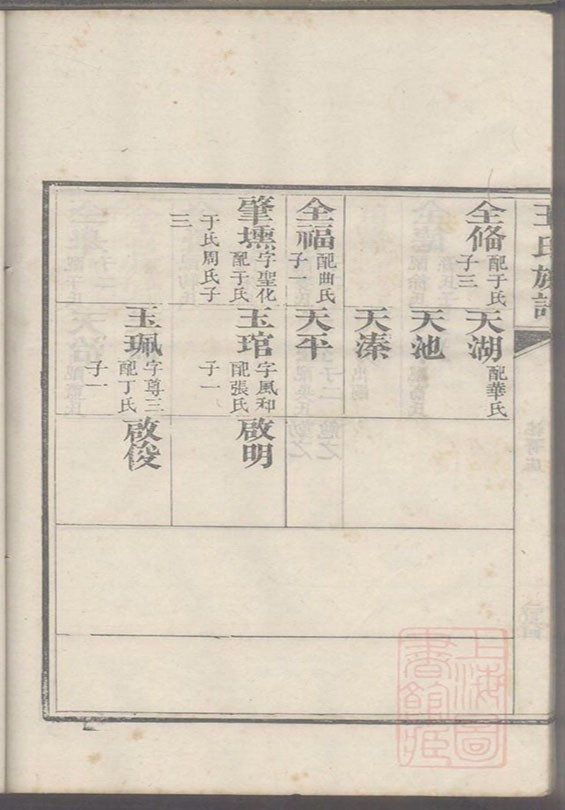 王氏族譜
全脩
配于氏
子三
天湖
配華氏
天池
天溱
全福
配曲氏
子一
天平
肇壎
字聖化
配于氏
于氏周氏子
三
玉琯
字風和
配張氏
子一
啟明
玉珮
字尊三
配丁氏
子一
啟俊
上海圖書館藏